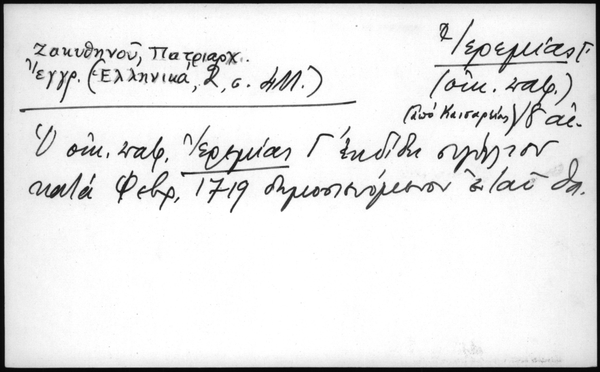 Ζακυθηνοῦ, Πατριαρχ.
ἔγγρ. (Ἑλληνικά, 2, σ. 411.)
Ἱερεμίας Γ΄
(οἰκ. πατρ.)
(ἀπὸ Καισαρείας)
Ὁ οἰκ. πατρ. Ἱερεμίας Γ΄ ἐκδίδει
κατά Φεβρ. 1719 δημοσιευόμενον